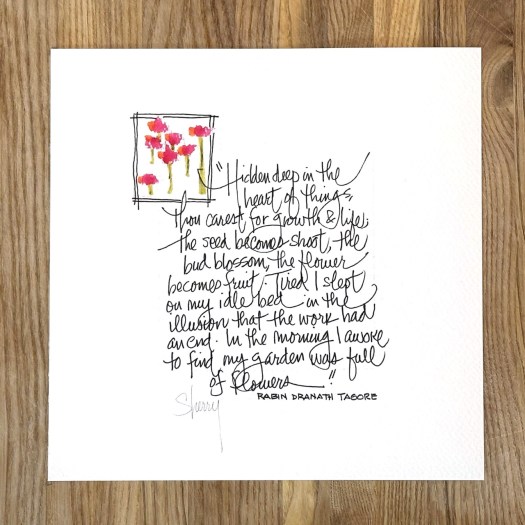 "Hidden deep in the
heart of things,
Thou carest for growth & life;
the seed becomes shoot, the
bud blossom, the flower
becomes fruit. Tired I slept
on my idle bed in the
illusion that the work had
an end. In the morning I awoke
to find my garden was full
of flowers."
RABIN DRANATH TAGORE
Sherry